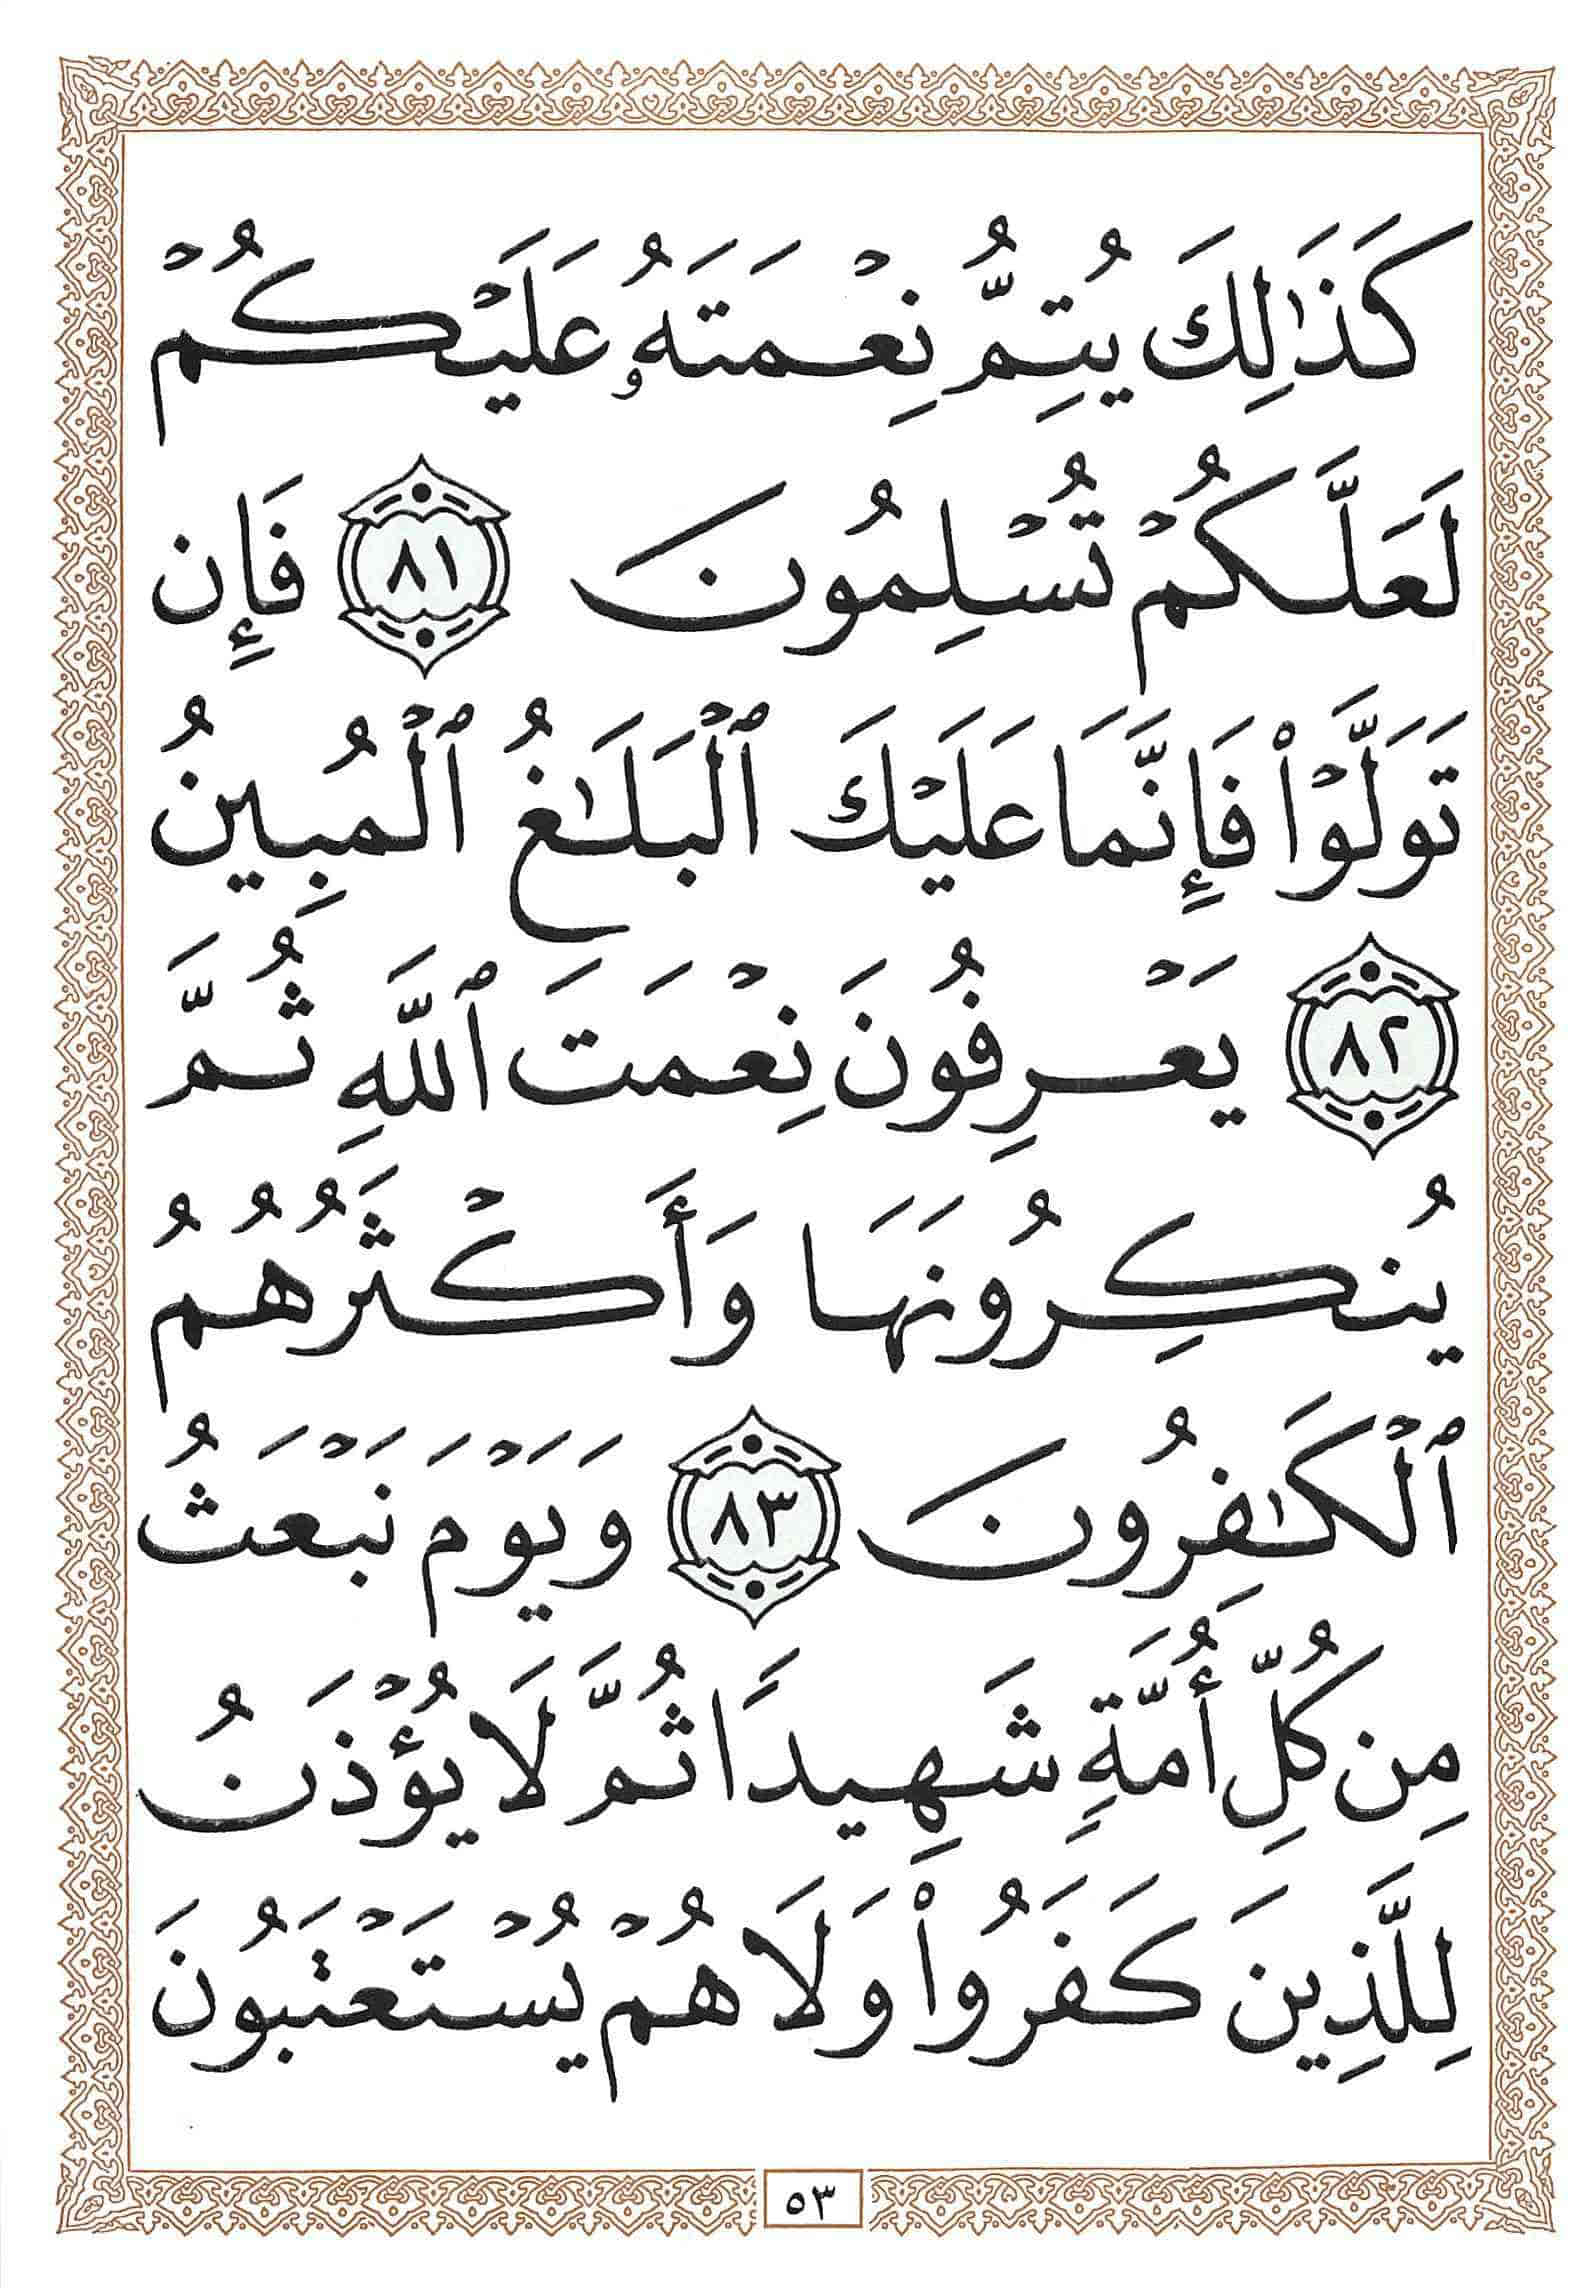 كَذَٰلِكَ يُتِمُّ نِعْمَتَهُۥ عَلَيْكُمْ
لَعَلَّكُمْ تُسْلِمُونَ ٨١ فَإِن
تَوَلَّوْا۟ فَإِنَّمَا عَلَيْكَ ٱلْبَلَٰغُ ٱلْمُبِينُ
٨٢ يَعْرِفُونَ نِعْمَتَ ٱللَّهِ ثُمَّ
يُنكِرُونَهَا وَأَكْثَرُهُمُ
ٱلْكَٰفِرُونَ ٨٣ وَيَوْمَ نَبْعَثُ
مِن كُلِّ أُمَّةٍ شَهِيدًا ثُمَّ لَا يُؤْذَنُ
لِلَّذِينَ كَفَرُوا۟ وَلَا هُمْ يُسْتَعْتَبُونَ
٥٣